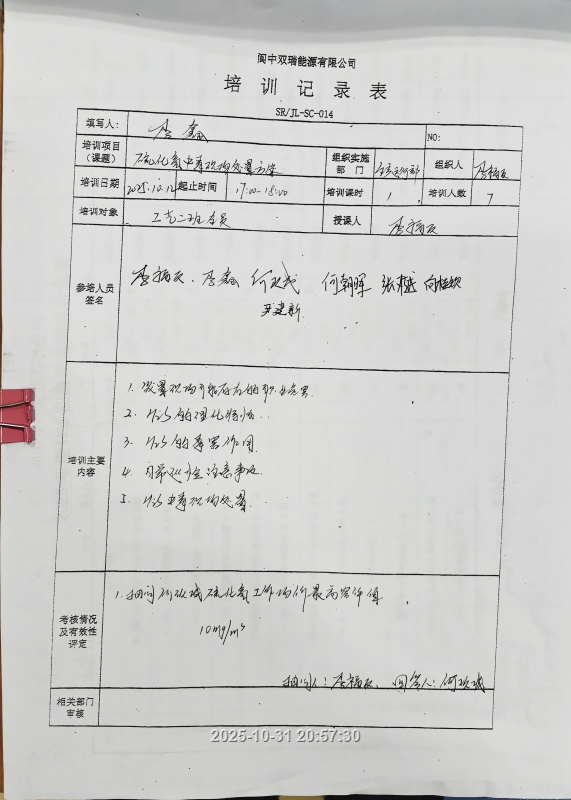 阆中双瑞能源有限公司
培训记录表
SR/JL-SC-014
填写人： 李鑫 NO:
培训项目（课题） 硫化氢中毒现场处置方案 组织实施部门 组织人 李福友
培训日期 2025.10.12 起止时间 17:00-18:00 培训课时 1 培训人数 7
培训对象 工艺二班全员 授课人 李福友
参培人员签名 李福友、李鑫 何欢成 何朝晖 张越
尹建新
培训主要内容
1. 装置现场可能存在的职业危害
2. H2S的理化特性.
3. H2S的毒害作用
4. 日常巡检注意事项
5. H2S中毒现场处置.
考核情况及有效性评定
1. 抽问 硫化氢工作场所最高容许值
10mg/m³
抽问人：李福友、回答人：何欢成
相关部门审核
2025-10-31 20:57:30